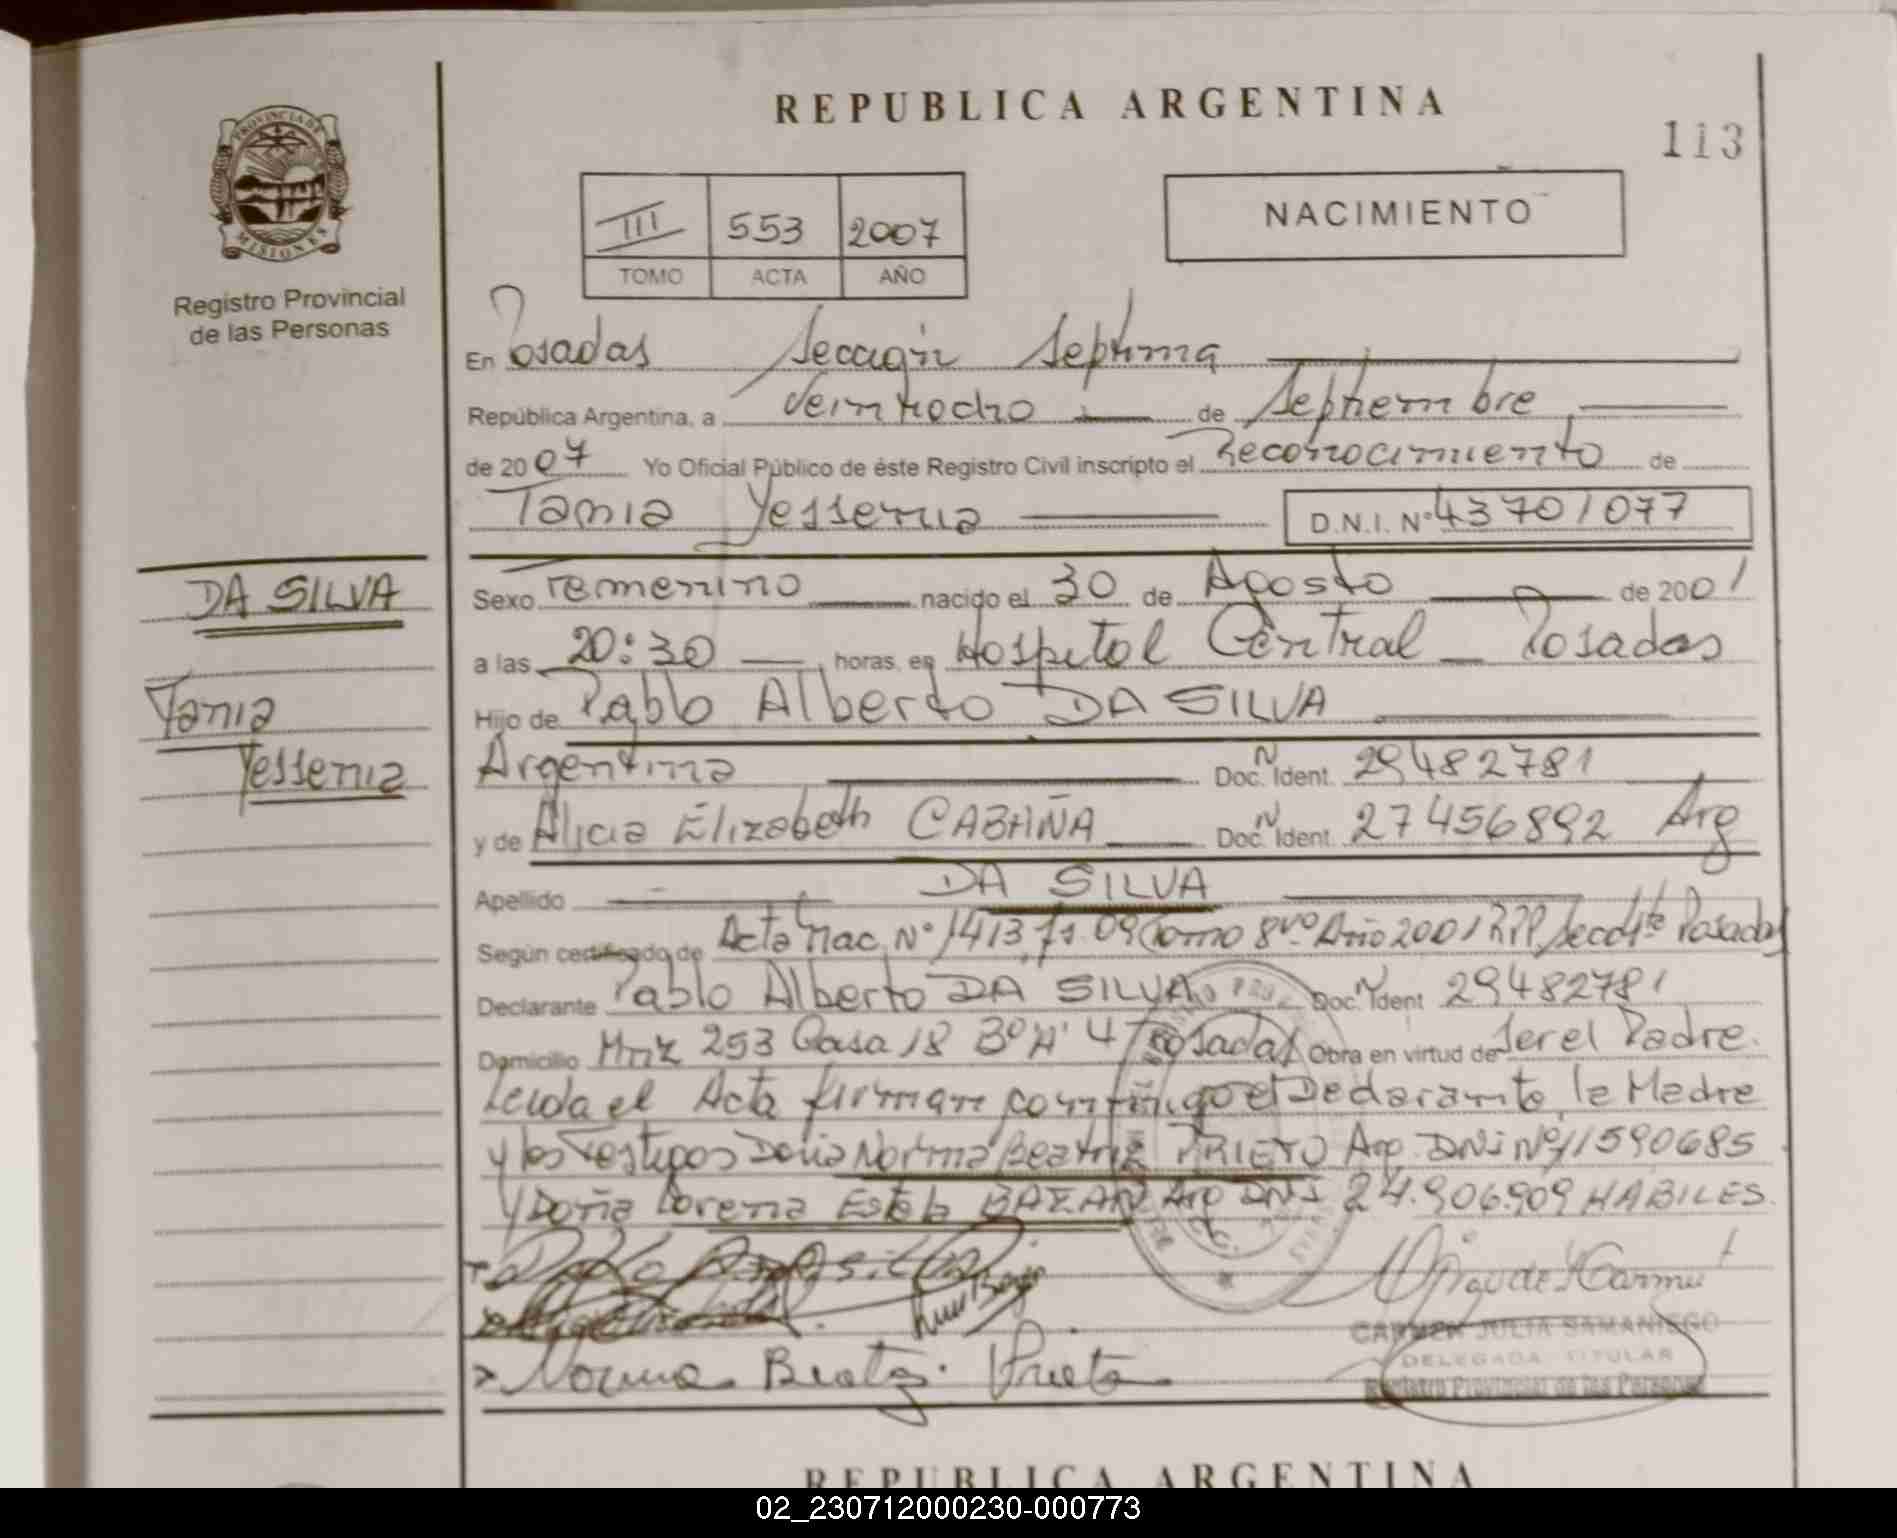 REPUBLICA ARGENTINA
113
PROVINCIA DE
MISIONES
Registro Provincial
de las Personas
III 553 2007
TOMO ACTA AÑO
NACIMIENTO
En Posadas Sección Septima
República Argentina, a Veintiocho de Septiembre
de 2007 Yo Oficial Público de éste Registro Civil inscripto el Reconocimiento de
Tania Yessenia D.N.I. Nº 43701077
DA SILVA
Tania
Yessenia
Sexo Femenino nacido el 30 de Agosto de 2001
a las 20:30 horas, en Hospital Central - Posadas
Hijo de Pablo Alberto DA SILVA
Argentina Doc. Ident. 29482781
y de Alicia Elizabeth CABAÑA Doc. Ident. 27456892 Arg
Apellido DA SILVA
Según certificado de Acta Nac. Nº 1413 Fs. 09 Tomo 8vo Año 2001 RPP Secc Posadas
Declarante Pablo Alberto DA SILVA Doc. Ident 29482781
Domicilio Mnz 253 Casa 18 Bº A 4 Posadas Obra en virtud de Ser el Padre.
Leida el Acta firman conmigo el Declarante, la Madre
y los Testigos Doña Norma Beatriz PRIETO Arg. DNI Nº 11590685
y Doña Lorena Estela BAZAN Arg DNI 24.906.909 HABILES.
Norma Beatriz Prieto
CARMEN JULIA SAMANIEGO
DELEGADA TITULAR
Registro Provincial de las Personas
REPUBLICA ARGENTINA
02_230712000230-000773